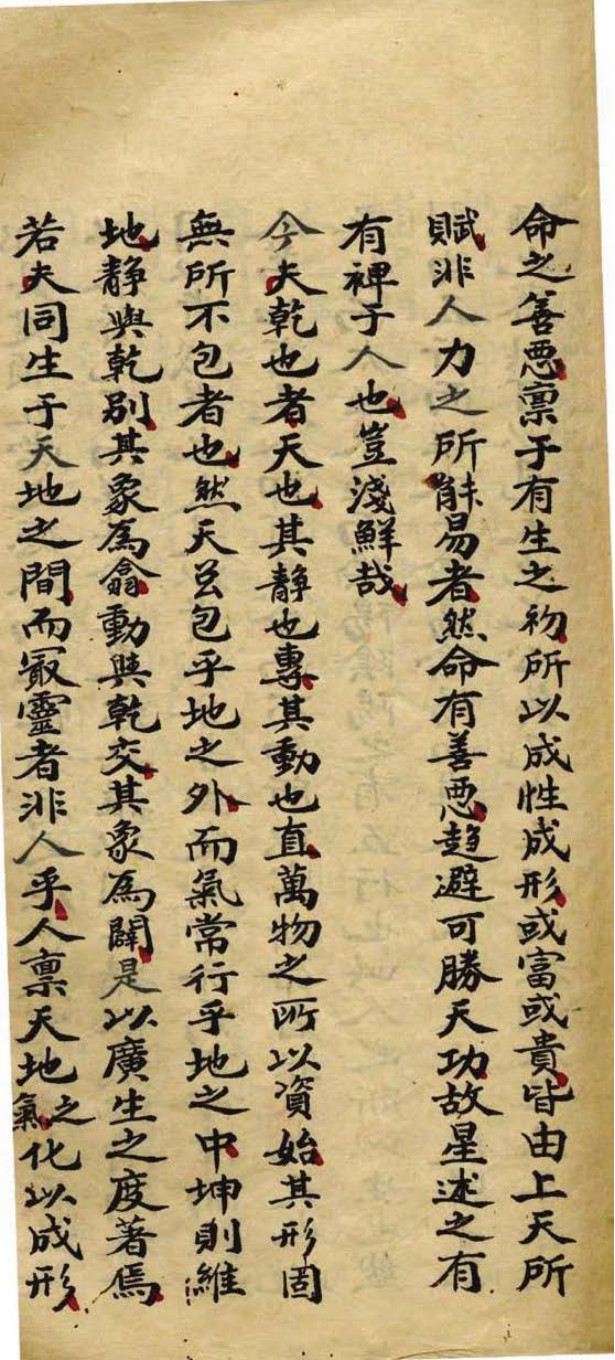 命之善恶禀于有生之初所以成性成形或富或貴皆由上天所
賦非人力之所能易者然命有善恶趋避可勝天功故星述之有
有裨于人也豈淺鮮哉
今夫乾也者天也其静也專其動也直萬物之所以資始其形固
無所不包者也然天公包乎地之外而氣常行乎地之中坤則維
地静與乾别其象為翕動與乾交其象為闢是以廣生之度著焉
若夫同生于天地之間而㝡靈者非人乎人禀天地之氣化以成形